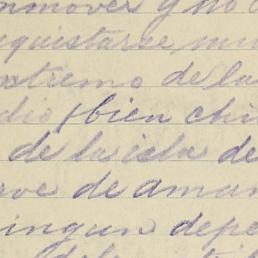 nmoves y no
quistarse, mu
xtremo de la
dio, bien chi
de la isla de
rve de amar
ingun depe